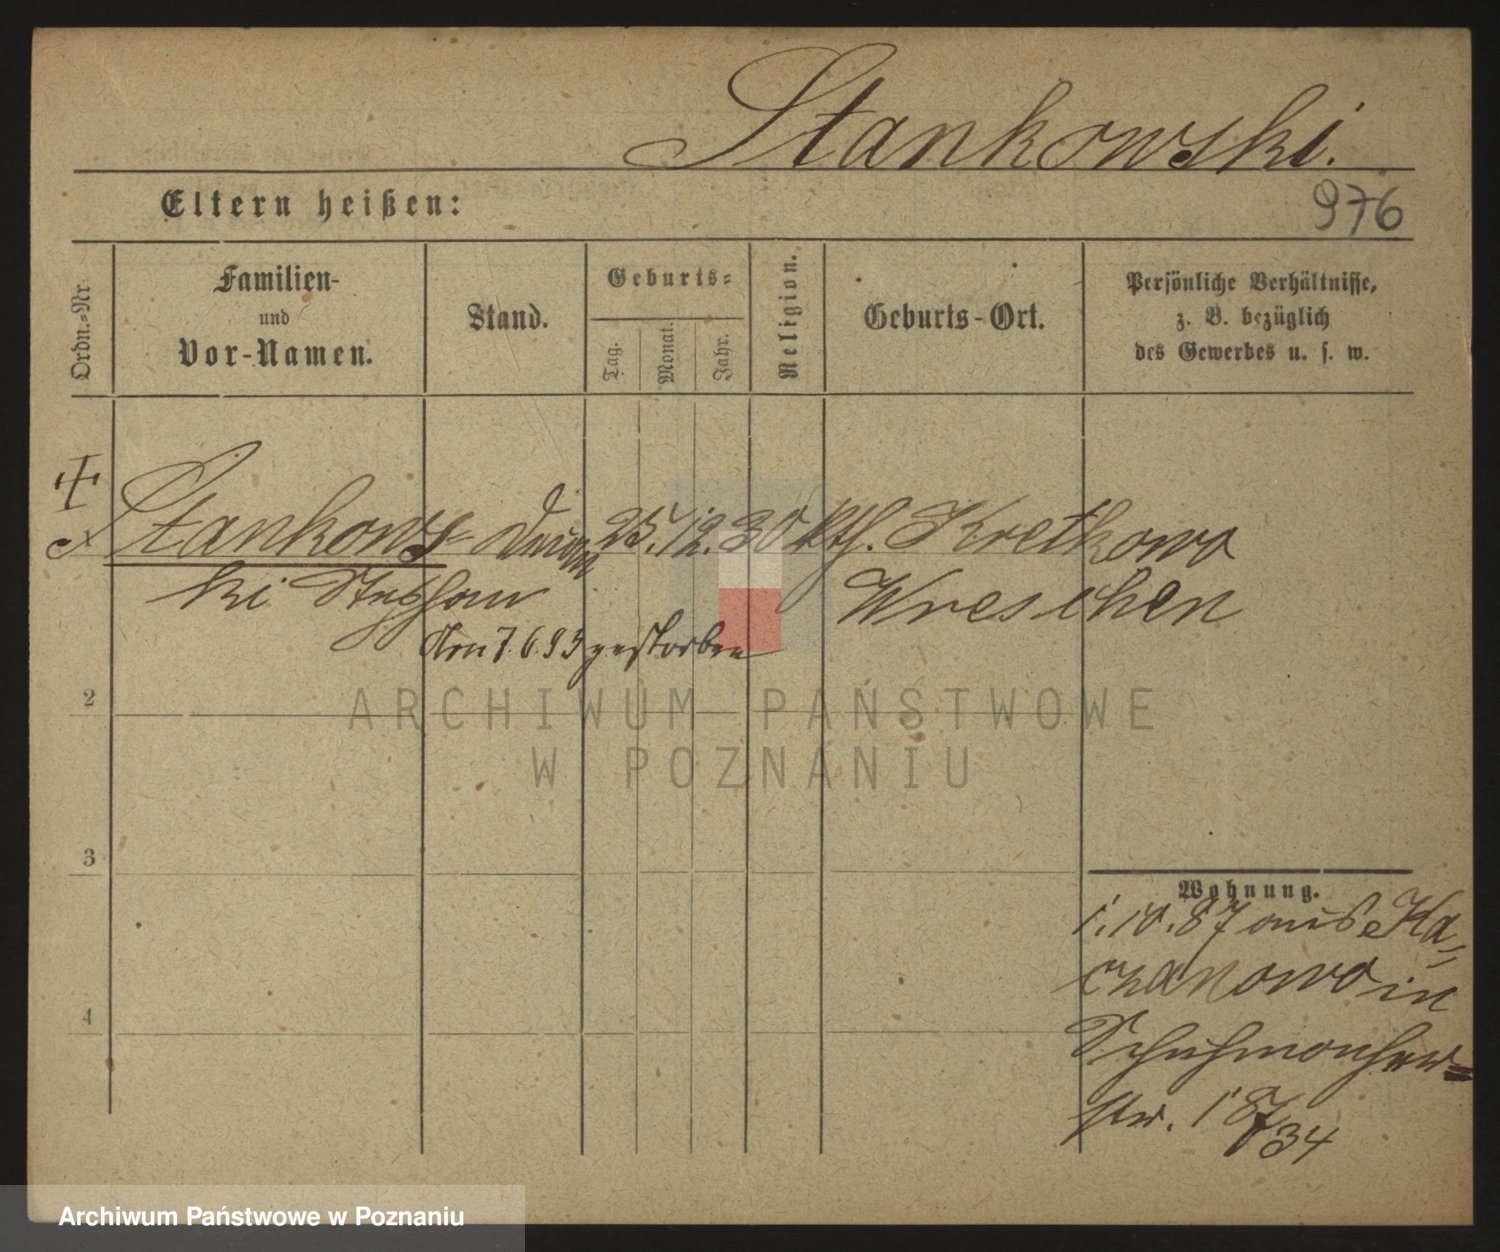 Stankowski.
Eltern heißen:
976
Ordn.-Nr.
Familien-
und
Vor-Namen.
Stand.
Geburts-
Tag.
Monat.
Jahr.
Religion.
Geburts-Ort.
Persönliche Verhältnisse,
z. B. bezüglich
des Gewerbes u. s. w.
1
Stankows- 25. 12. 30 kth. Kretkowo
ki Stephan Wreschen
Am 7.6.93 gestorben
2
ARCHIWUM PAŃSTWOWE
W POZNANIU
3
Wohnung.
1.10.87 aus Ka-
czanowo in
Schuhmacher-
str. 18/34
4
Archiwum Państwowe w Poznaniu